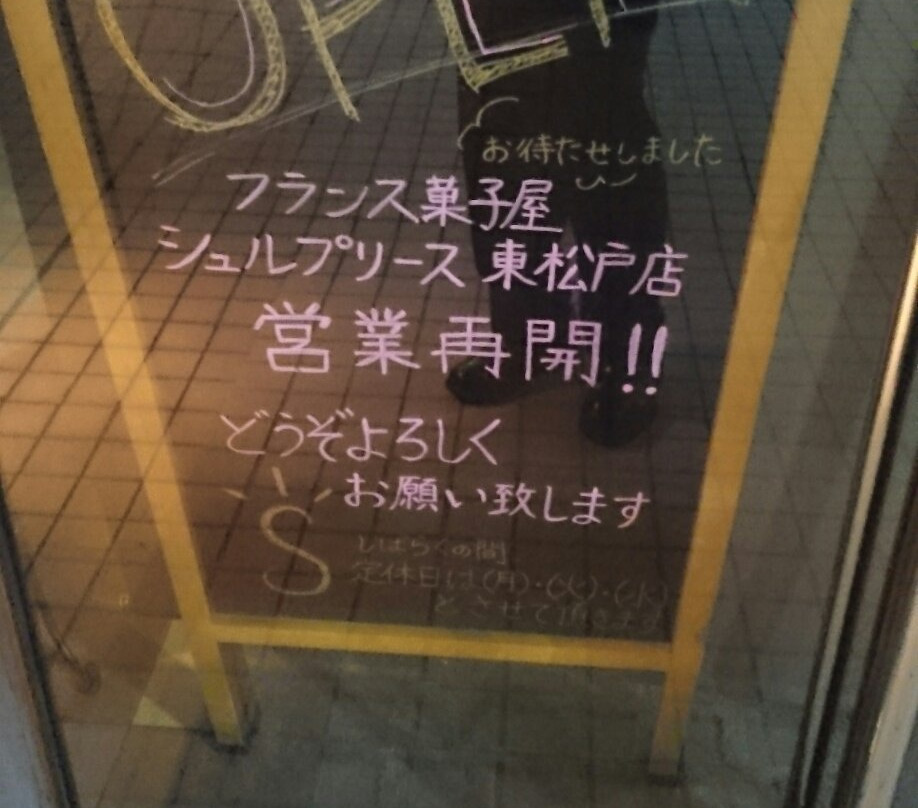 OPEN
お待たせしました
フランス菓子屋
シュルプリース 東松戸店
営業再開!!
どうぞよろしく
お願い致します
S
しばらくの間
定休日は(月)・(火)・(水)
とさせて頂きます